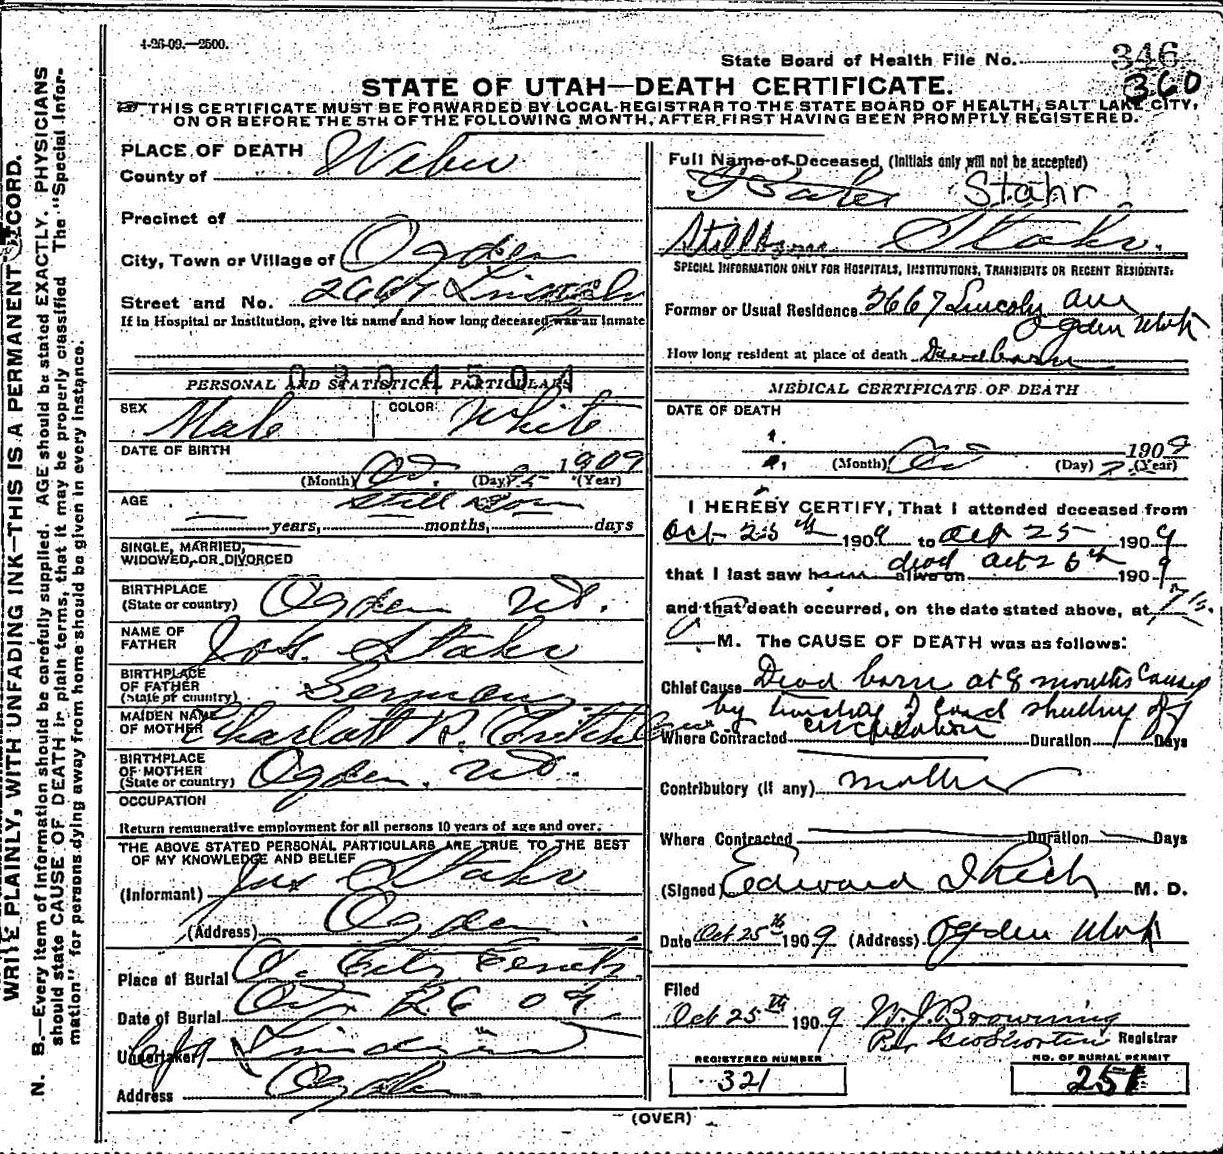 4-26-09.—2500.
State Board of Health File No. 346
360
STATE OF UTAH—DEATH CERTIFICATE.
THIS CERTIFICATE MUST BE FORWARDED BY LOCAL REGISTRAR TO THE STATE BOARD OF HEALTH, SALT LAKE CITY,
ON OR BEFORE THE 5TH OF THE FOLLOWING MONTH, AFTER FIRST HAVING BEEN PROMPTLY REGISTERED.
WRITE PLAINLY, WITH UNFADING INK—THIS IS A PERMANENT RECORD.
N. B.—Every item of information should be carefully supplied. AGE should be stated EXACTLY. PHYSICIANS
should state CAUSE OF DEATH in plain terms, that it may be properly classified The "Special Infor-
mation" for persons dying away from home should be given in every instance.
PLACE OF DEATH
County of Weber
Precinct of
City, Town or Village of Ogden
Street and No. 2667 Lincoln
If in Hospital or Institution, give its name and how long deceased was an inmate
PERSONAL AND STATISTICAL PARTICULARS
0304504
SEX Male COLOR White
DATE OF BIRTH
(Month) Oct. (Day) 25 1909 (Year)
AGE Still Born
years, months, days
SINGLE, MARRIED,
WIDOWED, OR DIVORCED
BIRTHPLACE
(State or country) Ogden Ut.
NAME OF
FATHER Jos. Stahr
BIRTHPLACE
OF FATHER
(State or country) Germany
MAIDEN NAME
OF MOTHER Charlott R.
BIRTHPLACE
OF MOTHER
(State or country) Ogden. Ut.
OCCUPATION
Return remunerative employment for all persons 10 years of age and over.
THE ABOVE STATED PERSONAL PARTICULARS ARE TRUE TO THE BEST
OF MY KNOWLEDGE AND BELIEF
(Informant) Jos Stahr
(Address) Ogden
Place of Burial O. City Cemetr.
Date of Burial Oct 26 09
Undertaker Lindquist
Address Ogden
Full Name of Deceased, (Initials only will not be accepted)
Stahr
Stillborn Stahr.
SPECIAL INFORMATION ONLY FOR HOSPITALS, INSTITUTIONS, TRANSIENTS OR RECENT RESIDENTS:
Former or Usual Residence 2667 Lincoln ave
Ogden Utah
How long resident at place of death Dead born
MEDICAL CERTIFICATE OF DEATH
DATE OF DEATH
1909
(Month) Oct (Day) (Year)
I HEREBY CERTIFY, That I attended deceased from
Oct 25th 1909 to Oct 25 1909
that I last saw him alive on dead Oct 26th 1909
and that death occurred, on the date stated above, at
M. The CAUSE OF DEATH was as follows:
Chief Cause Dead born at 8 months Caused
by twisting of cord shutting off
circulation
Where Contracted Duration Days
Contributory (if any) mother
Where Contracted Duration Days
(Signed) Edward I Rich M. D.
Date Oct 25th 1909 (Address) Ogden Utah
Filed
Oct 25th 1909 W. J. Browning
Per Geo Shorten Registrar
REGISTERED NUMBER
321
NO. OF BURIAL PERMIT
251
(OVER)